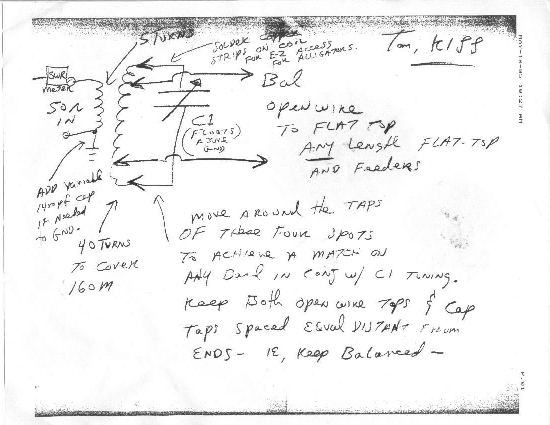 5 TURNS
SOLDER COPPER
STRIPS ON COIL
FOR E-Z ACCESS
FOR ALLIGATORS.
Tom, K1JJ
SWR
METER
50Ω
IN
Bal
OPENWIRE
TO FLAT TOP
ANY Length FLAT-TOP
AND Feeders
C1
(FLOATS
ABOVE
GND)
ADD Variable
140pf cap
IF Needed
to GND.
40 TURNS
To Cover
160M
MOVE AROUND the TAPS
OF These Four SPOTS
TO ACHIEVE A MATCH ON
ANY Band IN CONJ w/ C1 TUNING.
Keep Both Openwire Taps & Cap
Taps Spaced EQUAL DISTANT FROM
ENDS - IE, Keep Balanced -